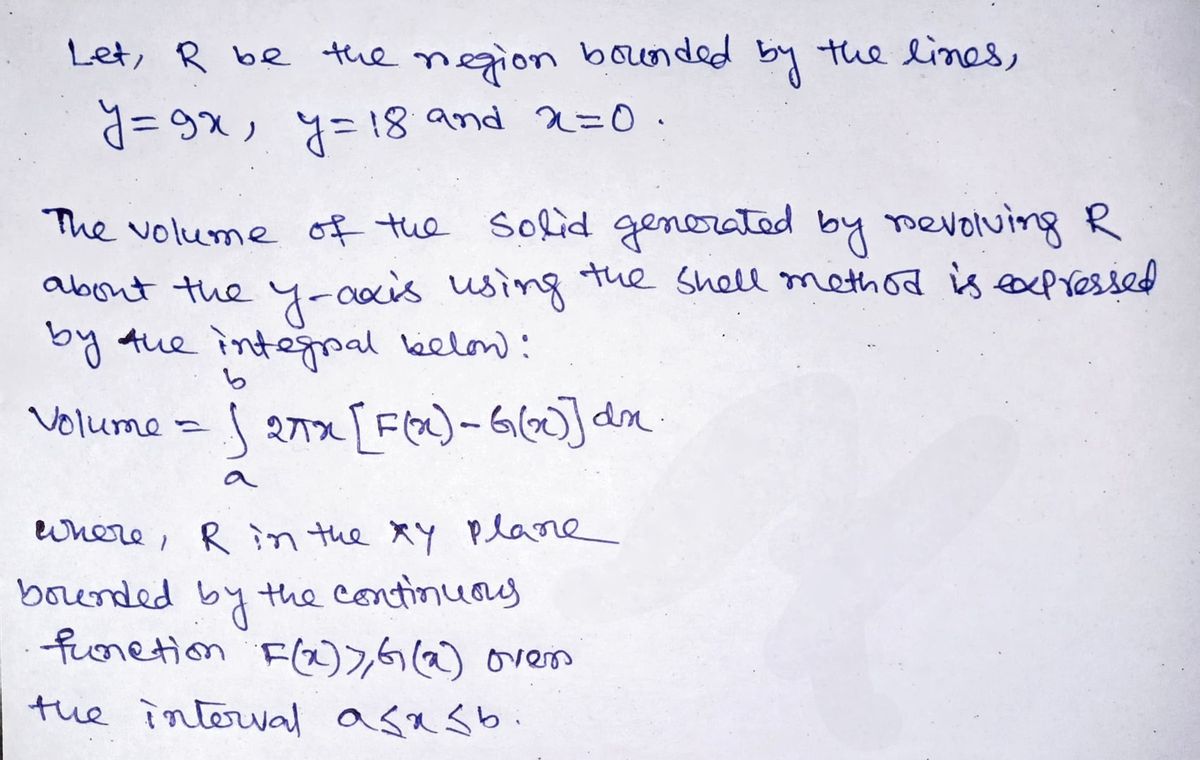 Let, R be the region bounded by the lines,
y=9x, y=18 and x=0.
The volume of the solid generated by revolving R
about the y-axis using the shell method is expressed
by the integral below:
Volume = ∫ₐᵇ 2πx [F(x) - G(x)] dx.
where, R in the xy plane
bounded by the continuous
function F(x)⩾G(x) over
the interval a≤x≤b.